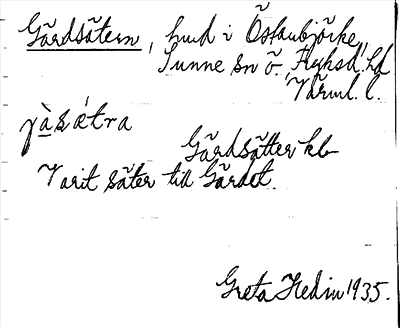 Gårdsätern, hmd i Östanbjörke,
Sunne sn ö. Fryksd. hd
Värml. l.
jàsǽtra
Gårdsätter kb
Varit säter till Gårdet.
Greta Hedin 1935.